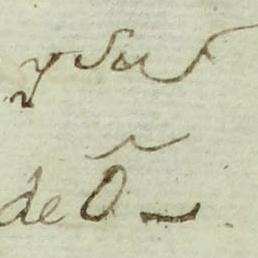 y sus
de Õ